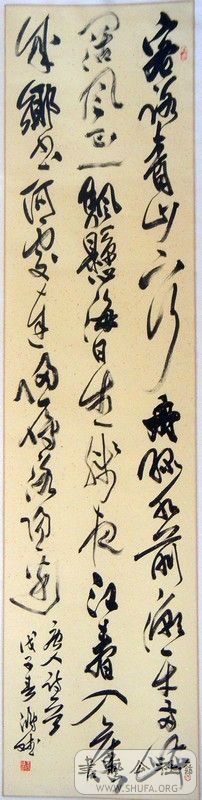 客路青山下行舟綠水前潮平兩岸
闊風正一颿懸海日生殘夜江春入舊
年鄉書何處達歸雁洛陽邊
唐人詩
戊子春
書藝公社
WWW.SHUFA.ORG